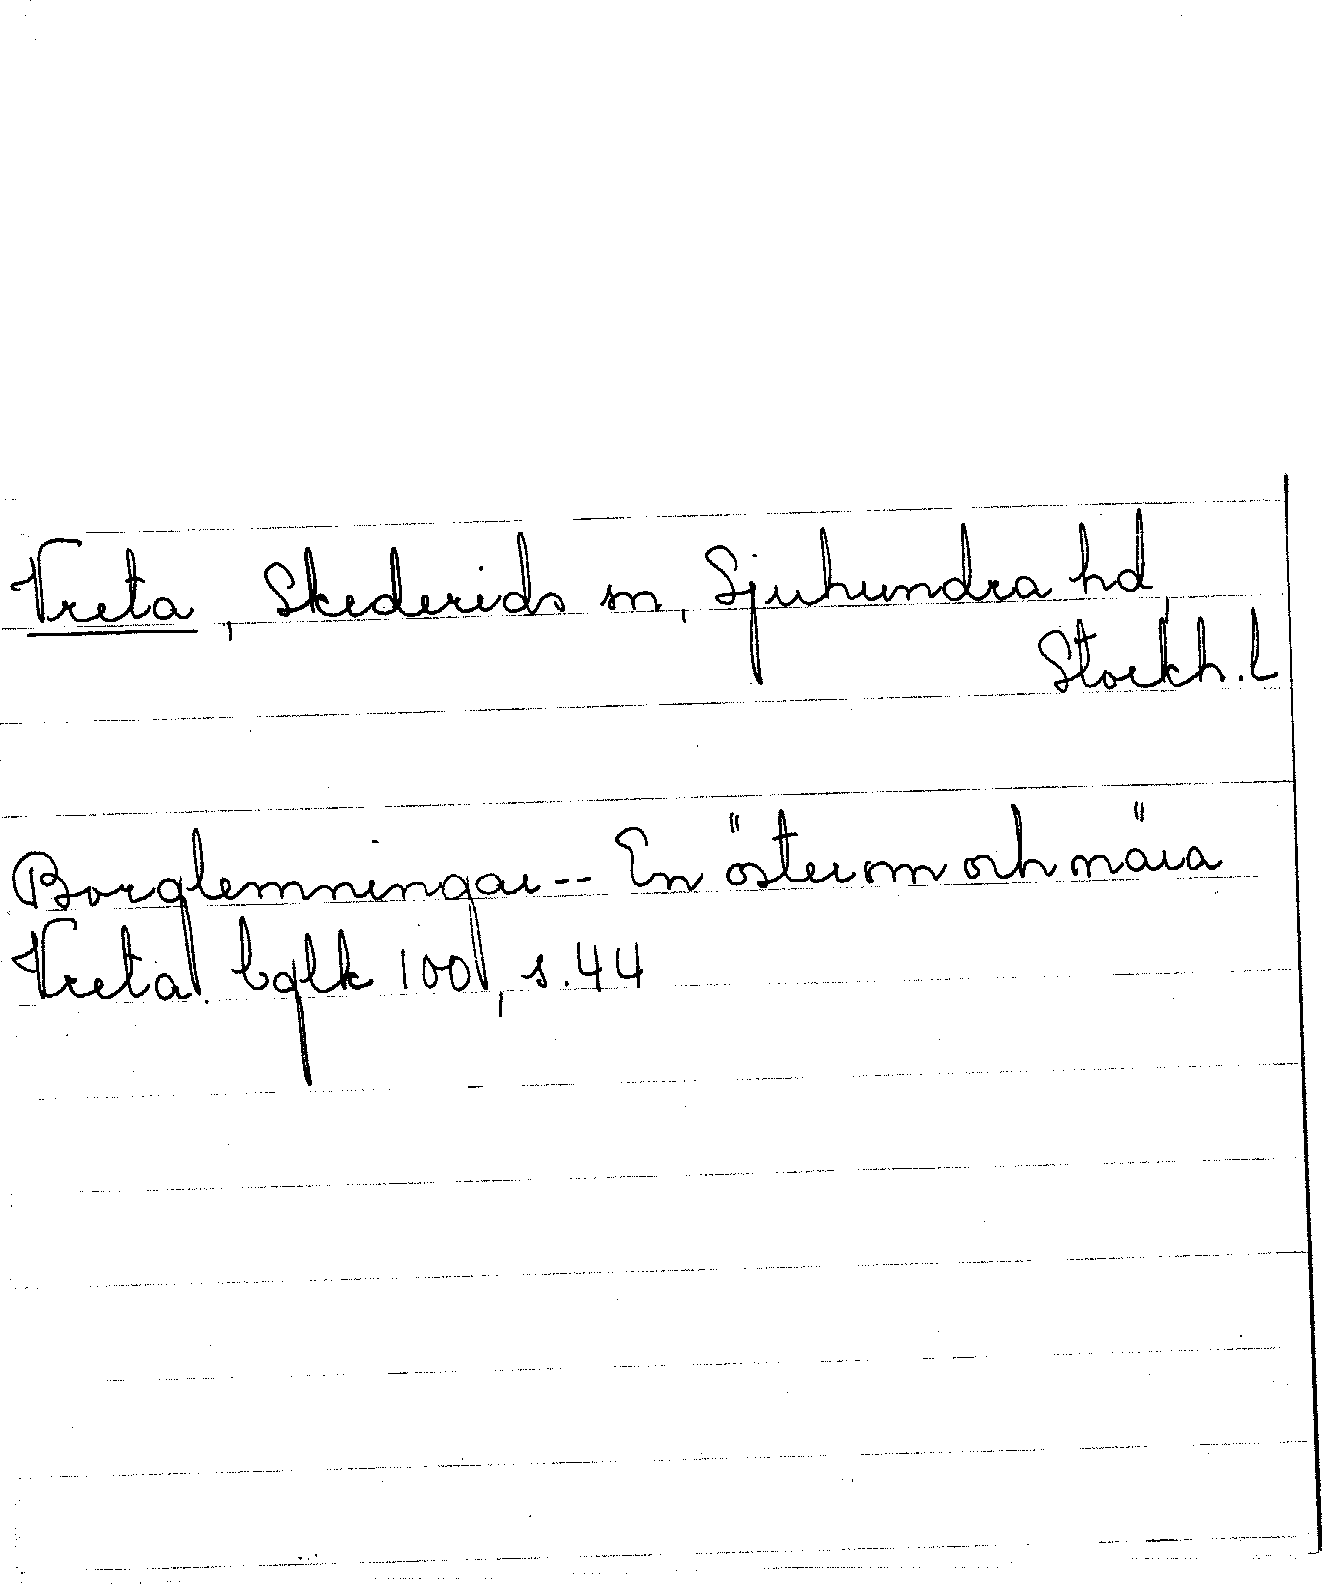 Vreta, Skederids sn, Sjuhundra hd,
Stockh. l
Borglemningar -- En öster om och nära
Vreta. bglk 100, s. 44